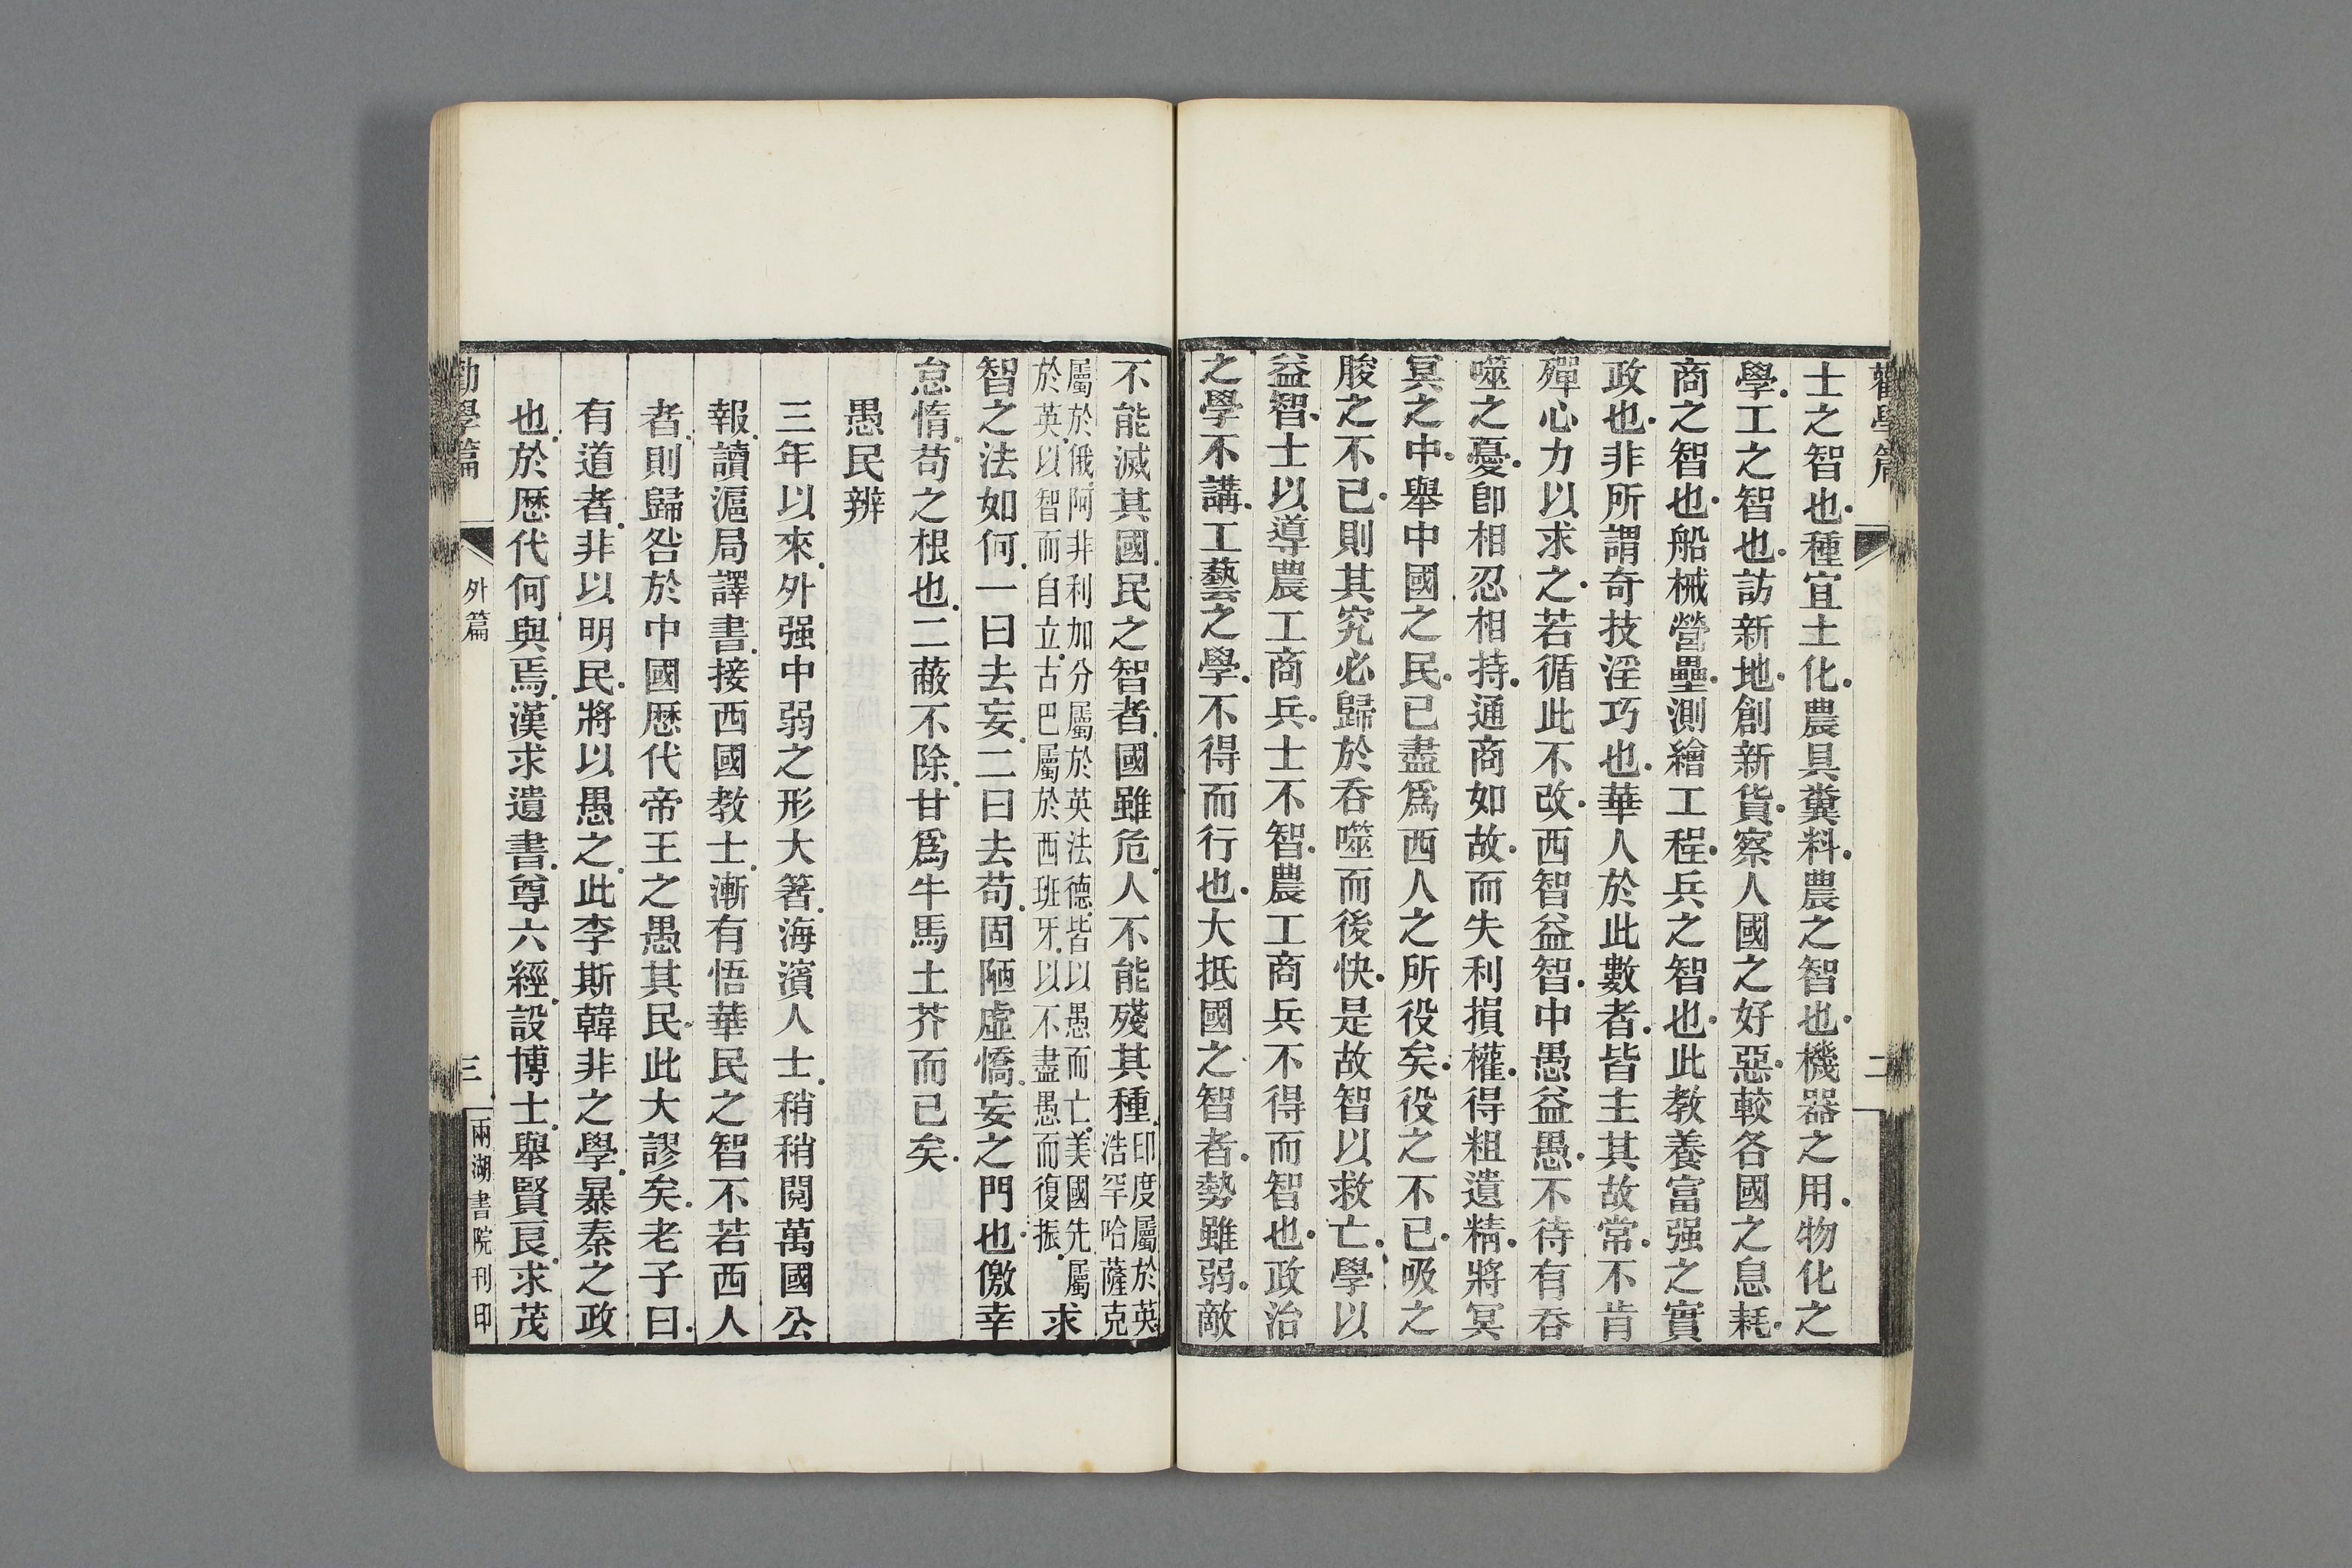 勸學篇
二
士之智也種宜土化農具糞料農之智也機器之用物化之
學工之智也訪新地創新貨察人國之好惡較各國之息耗
商之智也船械營壘測繪工程兵之智也此教養富强之實
政也非所謂奇技淫巧也華人於此數者皆主其故常不肯
殫心力以求之若循此不改西智益智中愚益愚不待有吞
噬之憂卽相忍相持通商如故而失利損權得粗遺精將冥
冥之中舉中國之民已盡爲西人之所役矣役之不已吸之
朘之不已則其究必歸於吞噬而後快是故智以救亡學以
益智士以導農工商兵士不智農工商兵不得而智也政治
之學不講工藝之學不得而行也大抵國之智者勢雖弱敵
不能滅其國民之智者國雖危人不能殘其種印度屬於英
浩罕哈薩克
屬於俄阿非利加分屬於英法德皆以愚而亡美國先屬
於英以智而自立古巴屬於西班牙以不盡愚而復振求
智之法如何一曰去妄二曰去苟固陋虛憍妄之門也僥幸
怠惰苟之根也二蔽不除甘爲牛馬土芥而已矣
愚民辨
三年以來外强中弱之形大著海濱人士稍稍閱萬國公
報讀滬局譯書接西國教士漸有悟華民之智不若西人
者則歸咎於中國歷代帝王之愚其民此大謬矣老子曰
有道者非以明民將以愚之此李斯韓非之學暴秦之政
也於歷代何與焉漢求遺書尊六經設博士舉賢良求茂
勸學篇
外篇
三
兩湖書院刊印